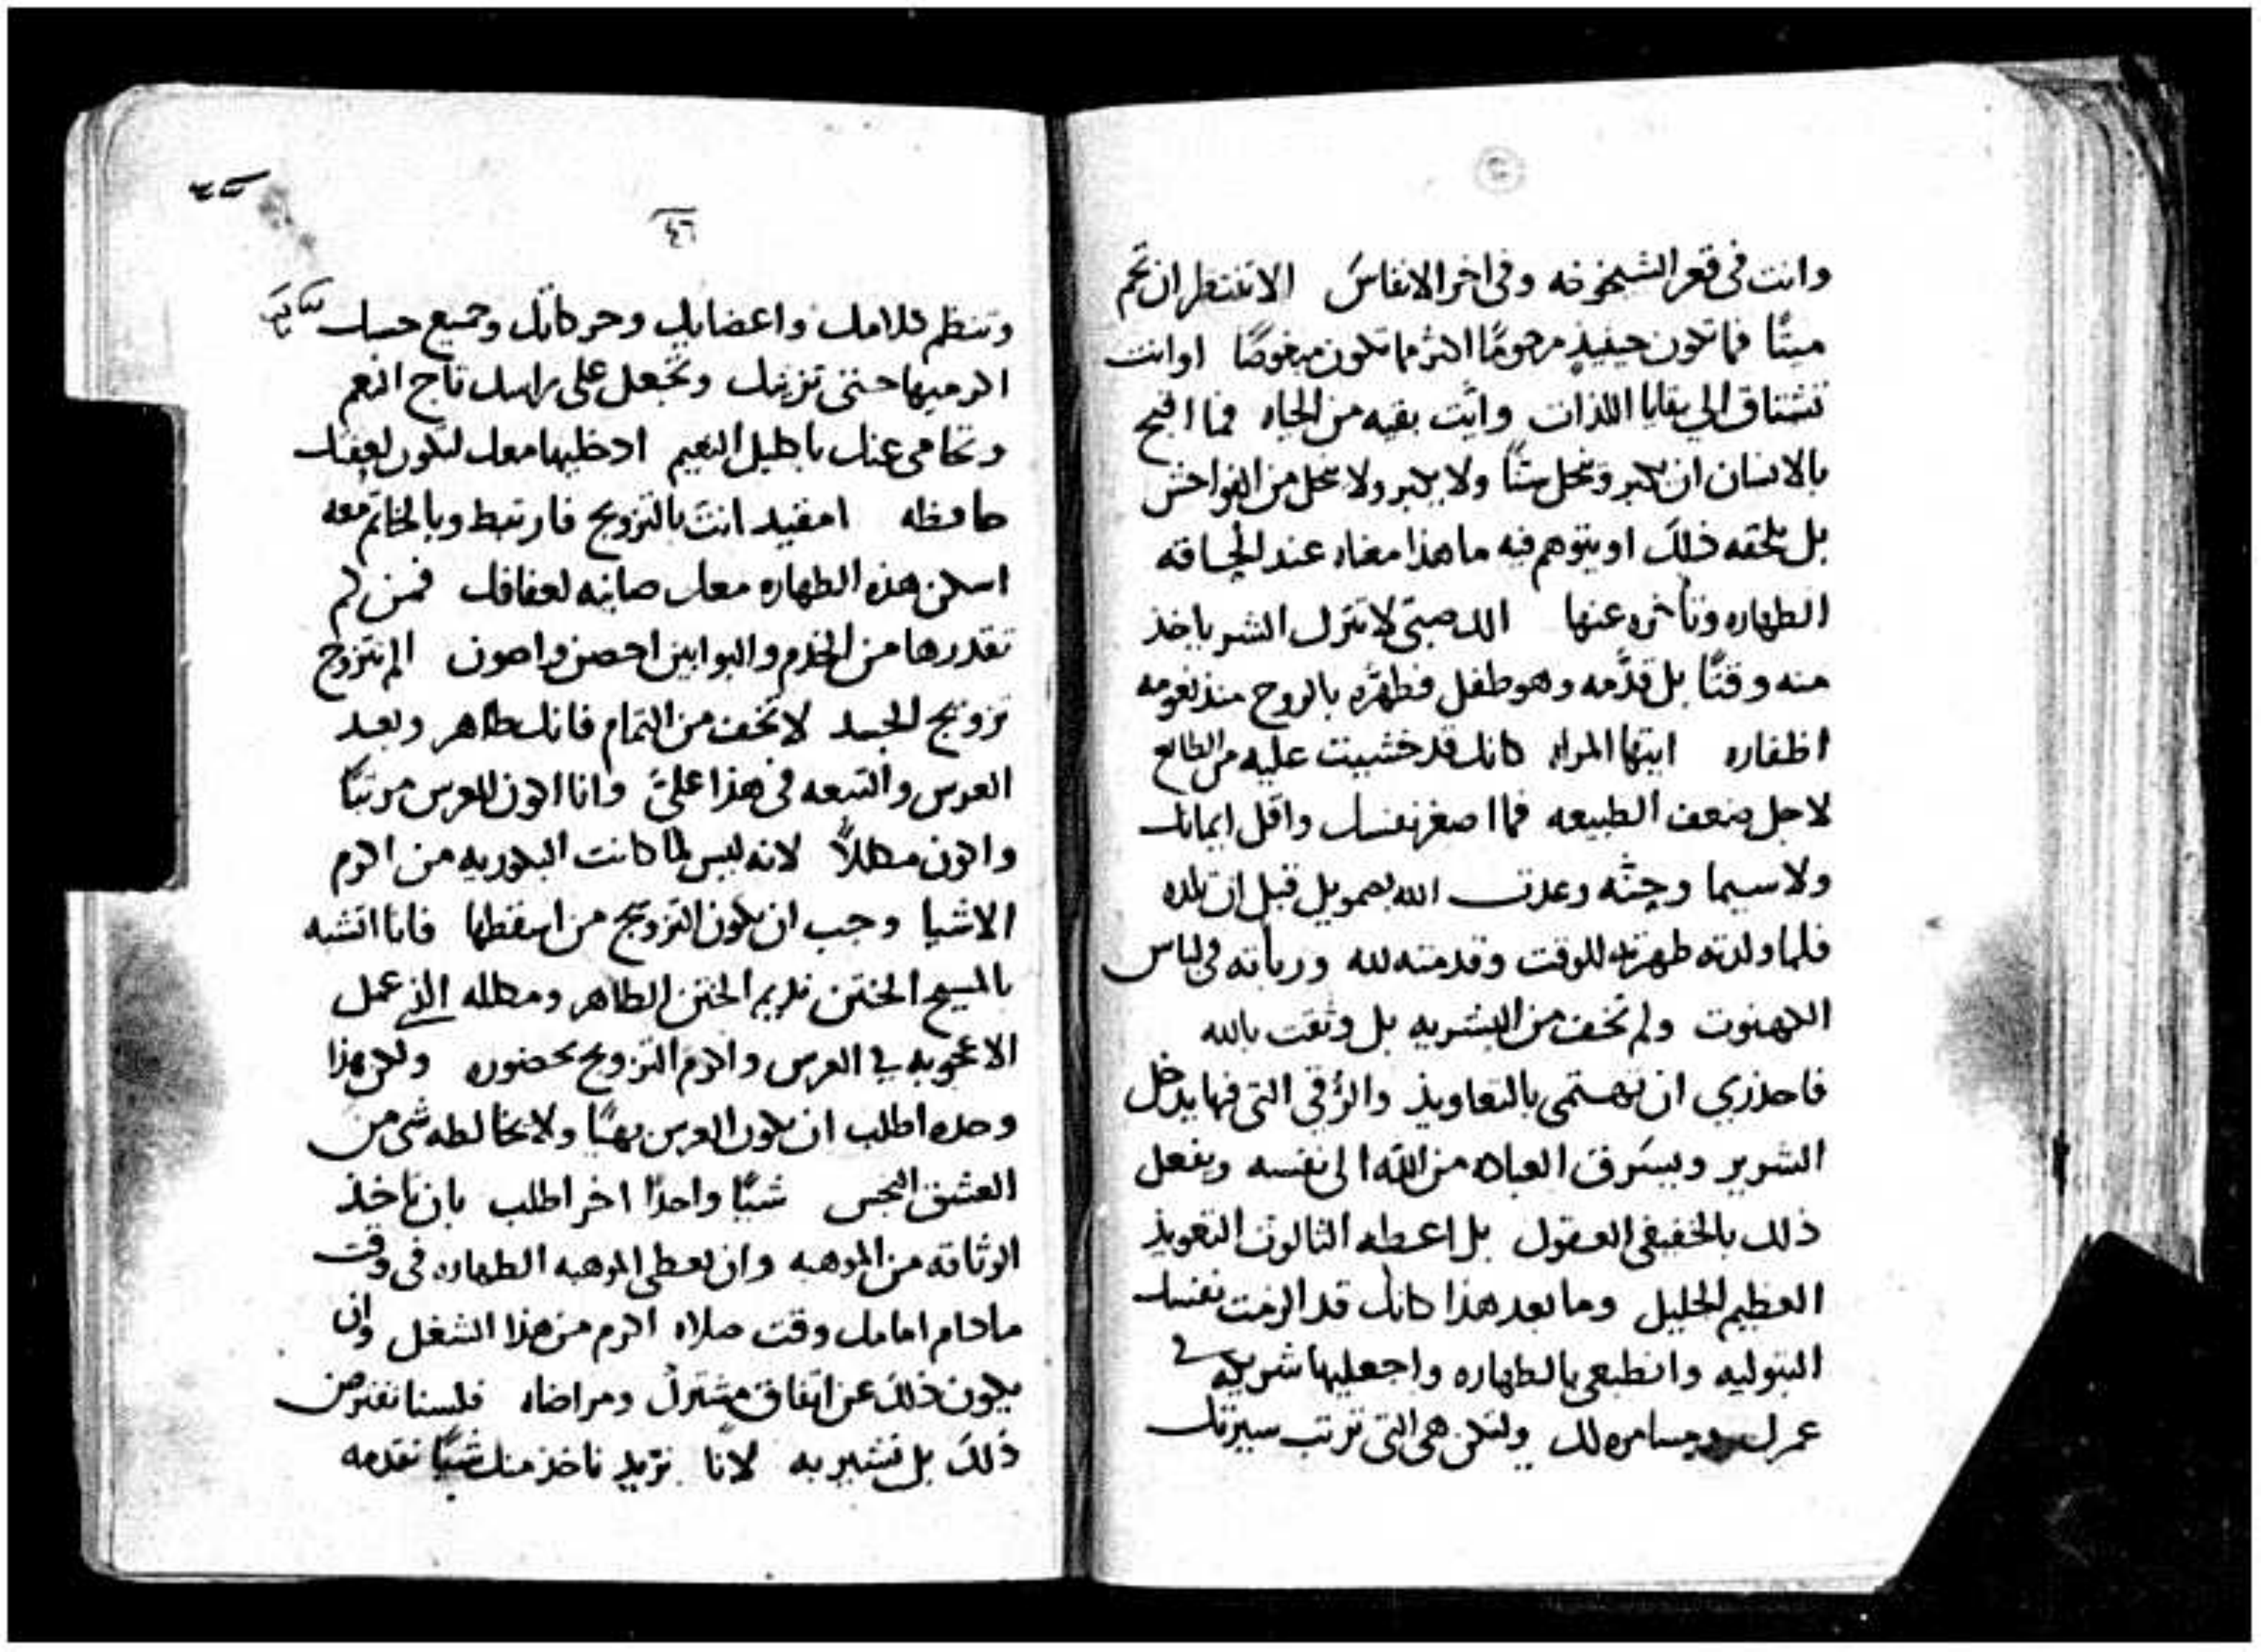 وانت في قعر الشيخوخه وفي اخر الانفاس الا تنتظر ان تحم
ميتًا فما تكون حينيذٍ مرحومًا اكثر مما تكون مبغوضًا اوانت
تشتاق الي بقايا اللذات وانت بقيه من الحياه فما اقبح
بالانسان ان يكبر وينحل سنًا ولا يكبر ولا ينحل من الفواحش
بل تلحقه ذلك او يتوهم فيه ما هذا معناه عند الحاقه
الطهاره وتاخره عنها الك صبيّ لا تترك الشر ياخذ
منه وقتًا بل قدّمه وهو طفل وطهّره بالروح منذ نعومه
اظفاره ايتها المراه كانك قد خشيت عليه من الطابع
لاجل ضعف الطبيعه فما اصغر نفسك واقل ايمانك
ولا سيما وحنّه وعدت الله بصمويل قبل ان تلده
فلما ولدته طهرته للوقت وقدمته لله وربأته في لباس
الكهنوت ولم تخف من البشريه بل وثقت بالله
فاحذري ان تهتمي بالتعاويذ والرُقي التي فيها يدخل
الشرير ويسَرق العباده من الله الي نفسه ويفعل
ذلك بالخفيفي العقول بل اعطه الثالوث التعويذ
العظيم الجليل وما بعد هذا كانك قد الزمت نفسك
البتوليه وانطبعي بالطهاره واجعليها شريكه في
عمرك ومسامره لك ولتكن هي التي ترتب سيرتك
٤٦
وتنظم كلامك واعضايك وحركاتك وجميع حسك
اكرميها حتي تزينك وتجعل علي راسك تاج النعم
وتحامي عنك باكليل النعيم ادخليها معك لتكون لعفتك
حافظه امقيد انت بالتزويج فارتبط وبالخاتم معه
اسكن هذه الطهاره معك صاينه لعفافك فمن لم
تقدرها من الخدم والبوابين احصن واصون الم تتزوج
تزويج الجسد لا تخف من التمام فانك طاهر وبعد
العرس والتبعه في هذا عليّ وانا اكون للعرس مرتبًا
واكون مكللاً لانه ليس لما كانت البكوريه من اكرم
الاشيا وجب ان يكون التزويج من اسقطها فانا اتشبه
بالمسيح الختن كريم الختن الطاهر ومكلله الذي عمل
الاعجوبه في العرس واكرم التزويج بحضوره ولكن هذا
وحده اطلب ان يكون العرس بهيًا ولا يخالطه شي من
العشق النجس شيًا واحدًا اخر اطلب بان تاخذ
الوثاقه من الموهبه وان يعطي الموهبه الطهاره في وقت
مادام امامك وقت صلاه اكرم من هذا الشغل وان
يكون ذلك عن اتفاق مشترك ومراضاه فلسنا نفترض
ذلك بل نشير به لانّا نريد ناخذ منك شيًا نقدمه